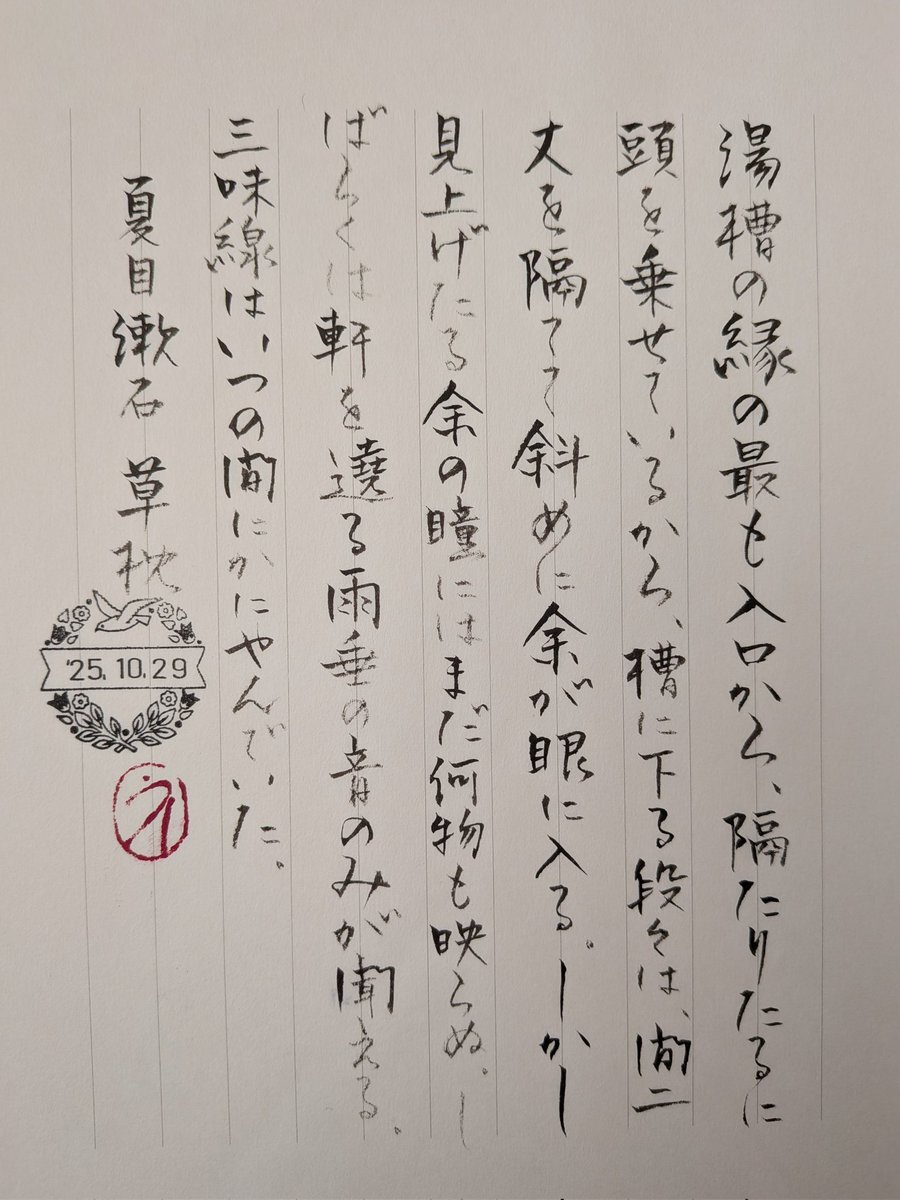 湯槽の縁の最も入口から、隔たりたるに
頭を乗せているから、槽に下る段々は、間二
丈を隔てて斜めに余が眼に入る。しかし
見上げたる余の瞳にはまだ何物も映らぬ。し
ばらくは軒を遶る雨垂の音のみが聞える。
三味線はいつの間にかにやんでいた。
夏目漱石 草枕
'25.10.29